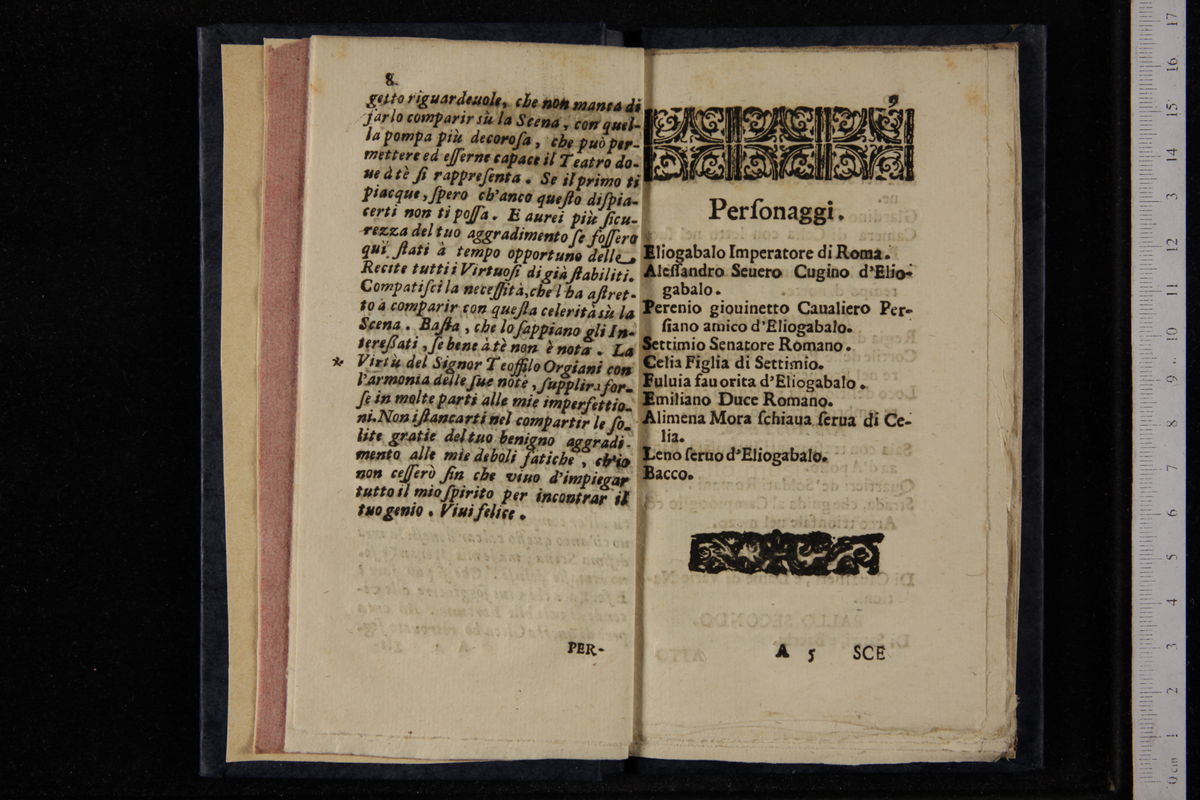 8
getto riguardeuole, che non manca di
farlo comparir sù la Scena, con quel-
la pompa più decoroſa, che può per-
mettere ed eſſerne capace il Teatro do-
ue à tè ſi rappreſenta. Se il primo ti
piacque, ſpero ch'anco queſto diſpia-
certi non ti poſſa. E aurei più ſicu-
rezza del tuo aggradimento ſe foſſero
quì ſtati à tempo opportuno delle
Recite tutti i Virtuoſi di già ſtabiliti.
Compatiſci la neceſſità, che l'ha aſtret-
to à comparir con queſta celerità sù la
Scena. Baſta, che lo ſappiano gli In-
tereßati, ſe bene à tè non è nota. La
* Virtù del Signor Teoffilo Orgiani con
l'armonia delle ſue note, ſupplirà for-
ſe in molte parti alle mie imperfettio-
ni. Non iſtancarti nel compartir le ſo-
lite gratie del tuo benigno aggradi-
mento alle mie deboli fatiche, ch'io
non ceſſerò ſin che viuo d'impiegar
tutto il mio ſpirito per incontrar il
tuo genio. Viui felice.
PER-
9
Perſonaggi.
Eliogabalo Imperatore di Roma.
Aleſſandro Seuero Cugino d'Elio-
gabalo.
Perenio giouinetto Caualiero Per-
ſiano amico d'Eliogabalo.
Settimio Senatore Romano.
Celia Figlia di Settimio.
Fuluia fauorita d'Eliogabalo.
Emiliano Duce Romano.
Alimena Mora ſchiaua ſerua di Ce-
lia.
Leno ſeruo d'Eliogabalo.
Bacco.
A 5 SCE